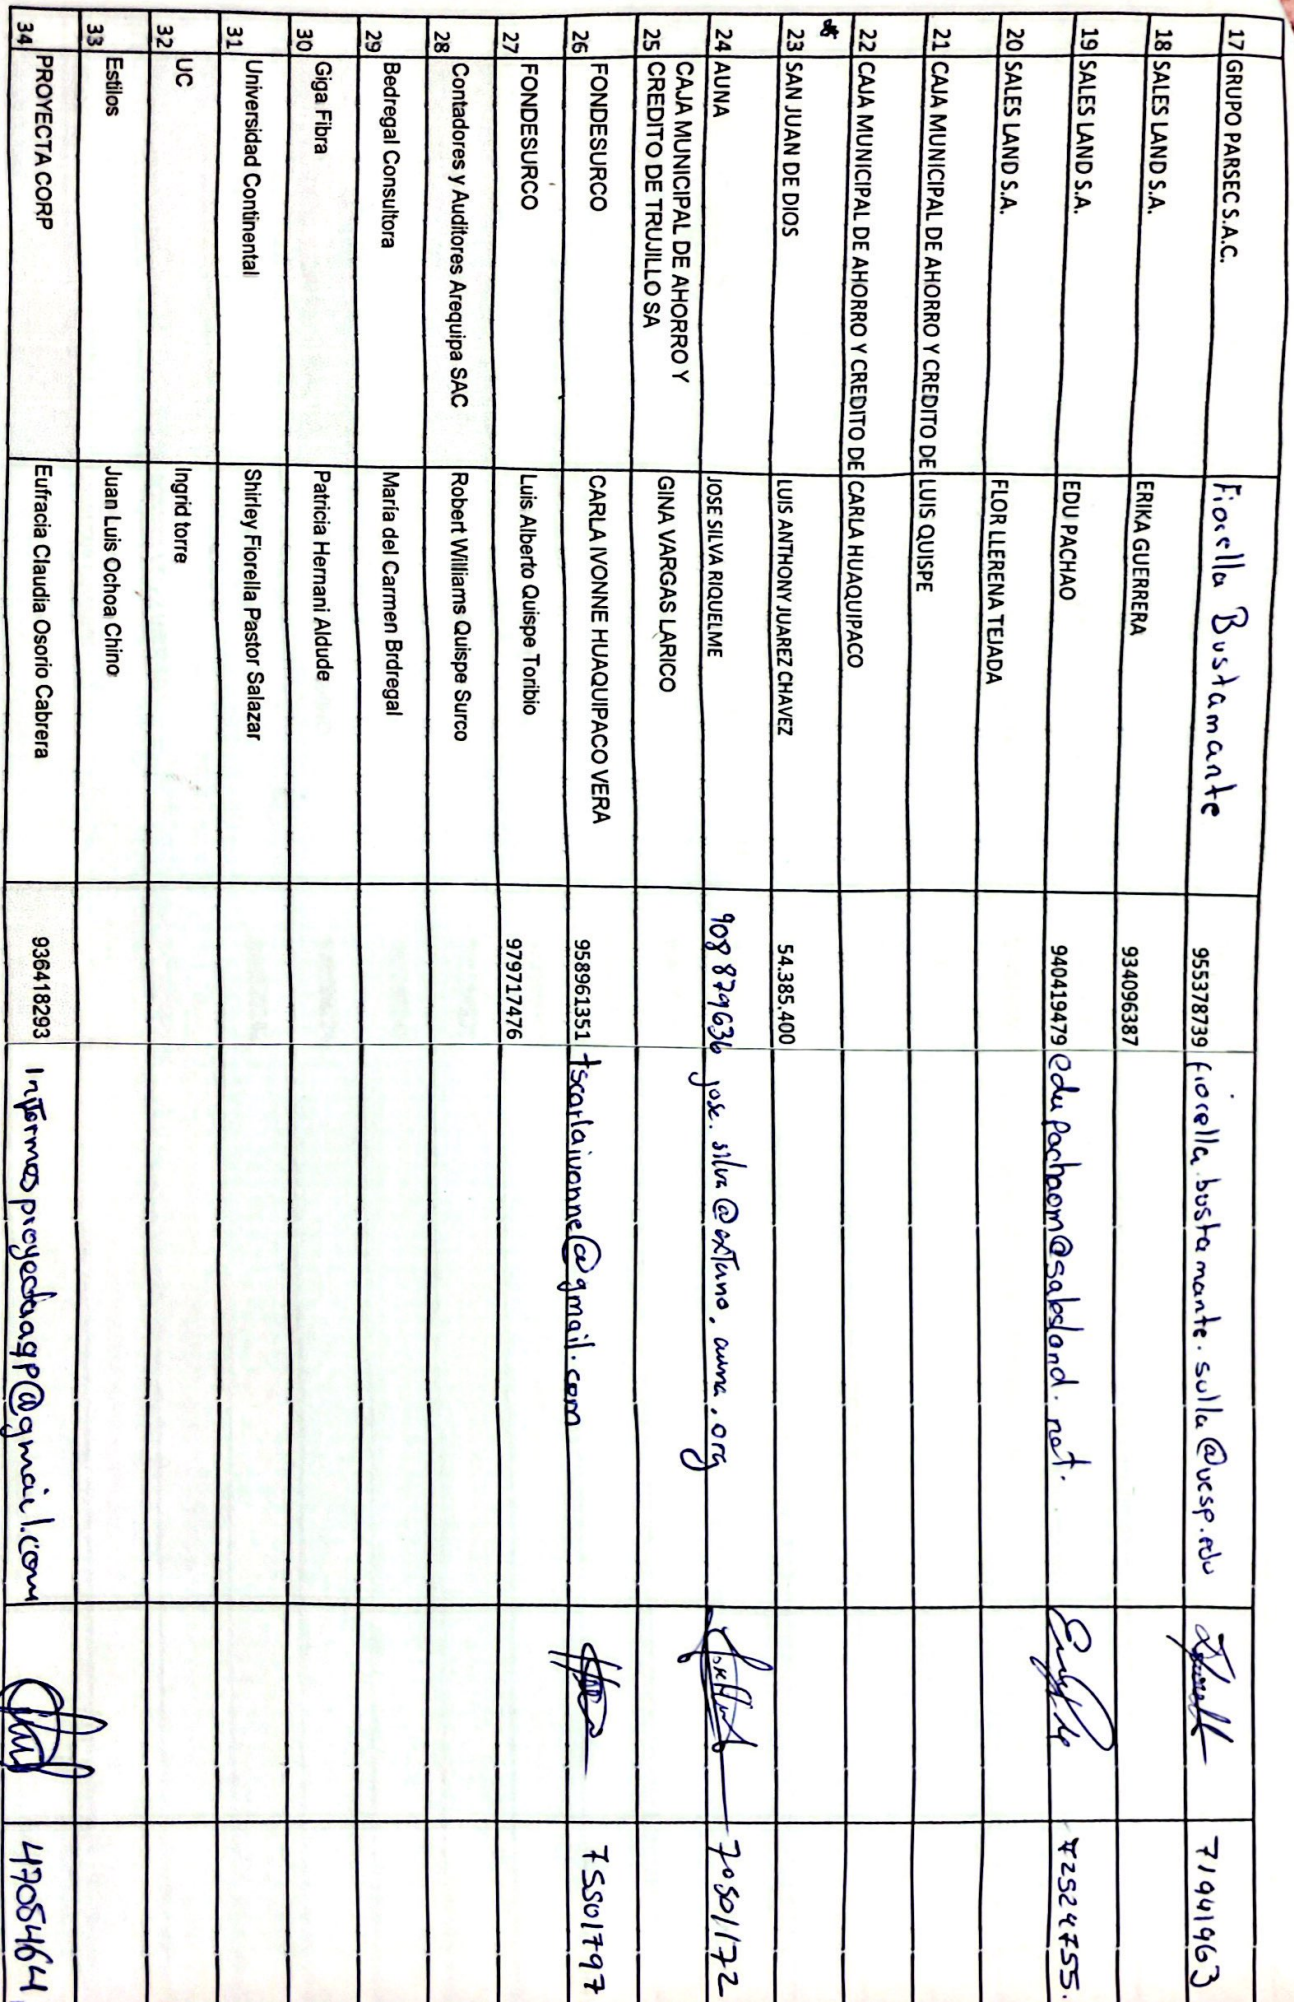 17 GRUPO PARSEC S.A.C. Fiorella Bustamante 955378739 fiorella.bustamante.sulla@ucsp.edu 71941963
18 SALES LAND S.A. ERIKA GUERRERA 934096387
19 SALES LAND S.A. EDU PACHAO 940419479 edupachaom@salesland.net. 72524755.
20 SALES LAND S.A. FLOR LLERENA TEJADA
21 CAJA MUNICIPAL DE AHORRO Y CREDITO DE LUIS QUISPE
22 CAJA MUNICIPAL DE AHORRO Y CREDITO DE CARLA HUAQUIPACO
23 SAN JUAN DE DIOS LUIS ANTHONY JUAREZ CHAVEZ 54.385.400
24 AUNA JOSE SILVA RIQUELME 908 879636 jose.silva@externo.auna.org 70501172
CAJA MUNICIPAL DE AHORRO Y
25 CREDITO DE TRUJILLO SA GINA VARGAS LARICO
26 FONDESURCO CARLA IVONNE HUAQUIPACO VERA 958961351 tscarlaivonne@gmail.com 75501797
27 FONDESURCO Luis Alberto Quispe Toribio 979717476
28 Contadores y Auditores Arequipa SAC Robert Williams Quispe Surco
29 Bedregal Consultora María del Carmen Brdregal
30 Giga Fibra Patricia Hernani Aldude
31 Universidad Continental Shirley Fiorella Pastor Salazar
32 UC Ingrid torre
33 Estilos Juan Luis Ochoa Chino
34 PROYECTA CORP Eufracia Claudia Osorio Cabrera 936418293 Informesproyectaaqp@gmail.com 47054164